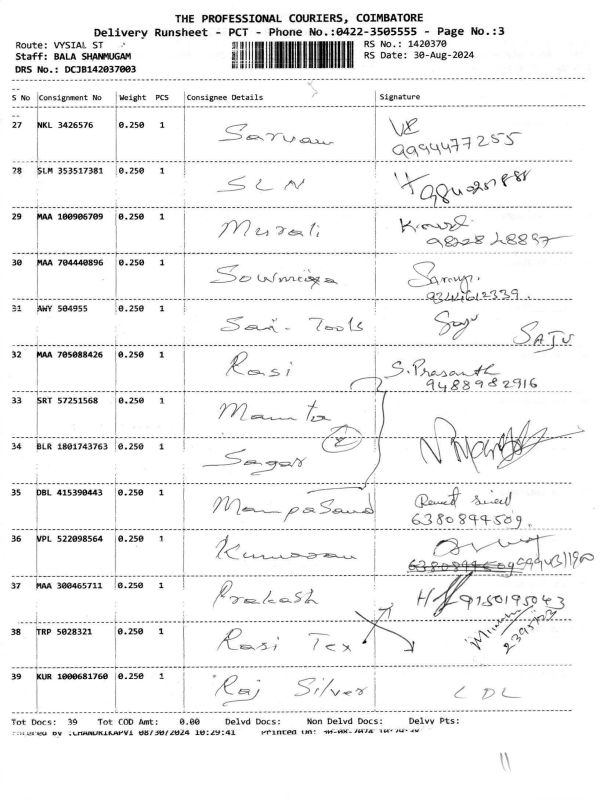 THE PROFESSIONAL COURIERS, COIMBATORE
Delivery Runsheet - PCT - Phone No.:0422-3505555 - Page No.:3
Route: VYSIAL ST RS No.: 1420370
Staff: BALA SHANMUGAM RS Date: 30-Aug-2024
DRS No.: DCJB142037003
S No Consignment No Weight PCS Consignee Details Signature
27 NKL 3426576 0.250 1 9994477255
28 SLM 353517381 0.250 1 SLN
29 MAA 100906709 0.250 1 Murali
30 MAA 704440896 0.250 1 Sowmiya
31 AWY 504955 0.250 1 Sai - Tools SAJU
32 MAA 705088426 0.250 1 Rasi S. Prasanth
9488982916
33 SRT 57251568 0.250 1 Mamta
34 BLR 1801743763 0.250 1 Sagar
35 DBL 415390443 0.250 1
6380894509.
36 VPL 522098564 0.250 1 Kumaran
37 MAA 300465711 0.250 1 Prakash 9150195043
38 TRP 5028321 0.250 1 Rasi Tex
39 KUR 1000681760 0.250 1 Raj Silver LDL
Tot Docs: 39 Tot COD Amt: 0.00 Delvd Docs: Non Delvd Docs: Delvy Pts:
Entered By :CHANDRIKAPVT 08/30/2024 10:29:41 Printed On: 30-08-2024
11